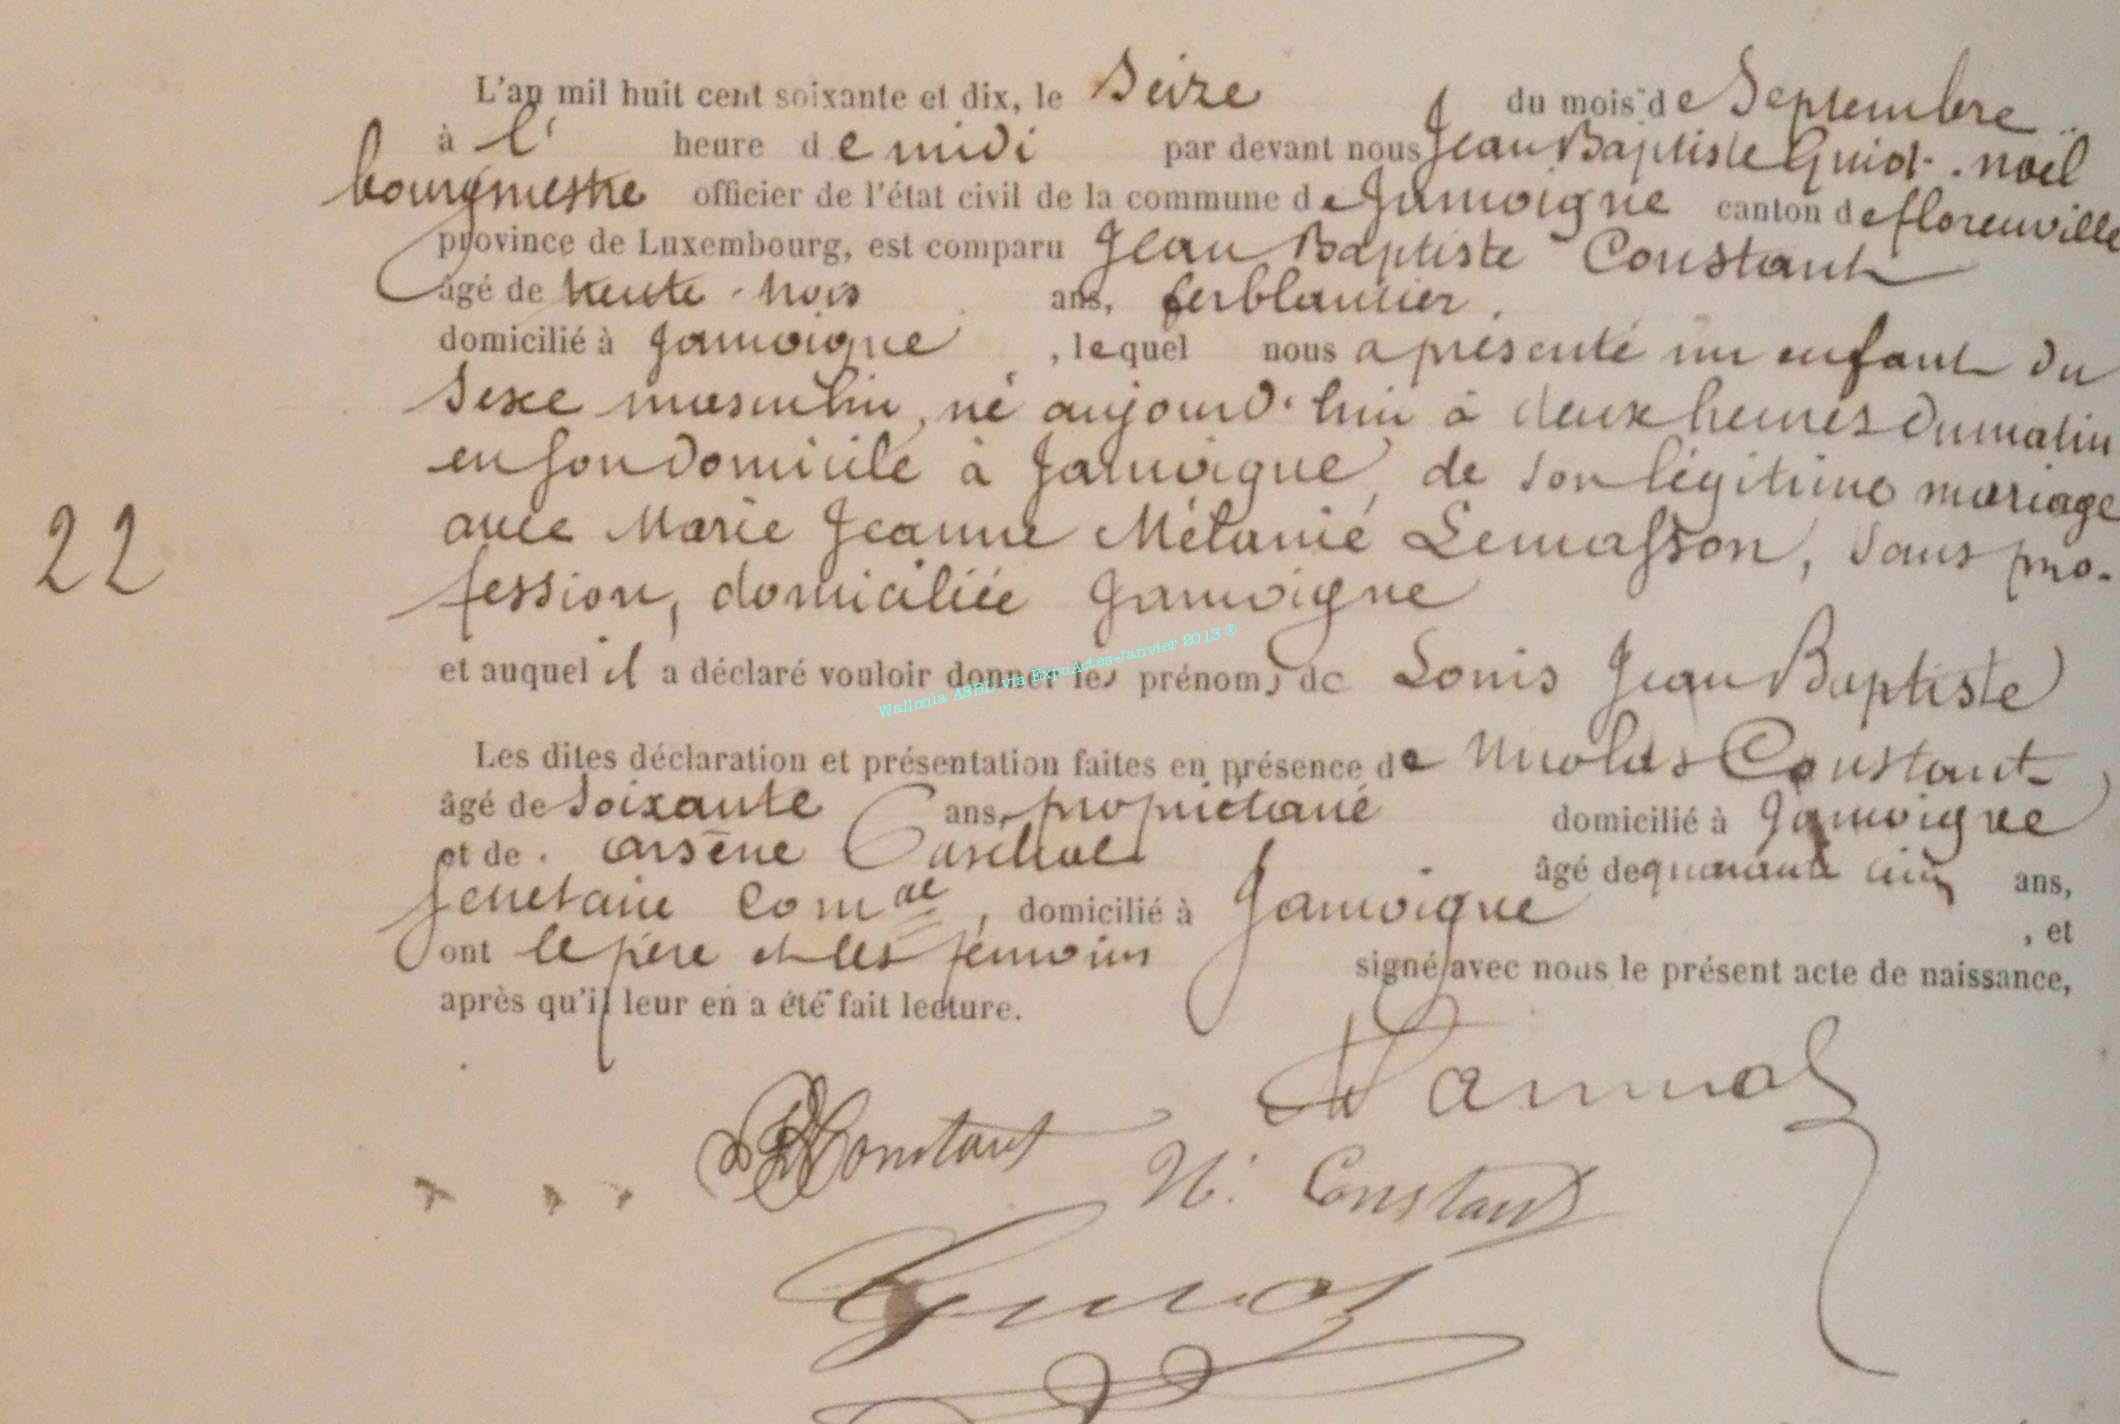 L'an mil huit cent soixante et dix, le Seize du mois de Septembre
à l' heure de midi par devant nous Jean Baptiste Guiot-noël
bourgmestre officier de l'état civil de la commune de Jamoigne canton de florenville
province de Luxembourg, est comparu Jean Baptiste Constant
âgé de trente-trois ans, ferblantier.
domicilié à Jamoigne, lequel nous a présenté un enfant du
Sexe masculin, né aujourd'hui à deux heures du matin
en son domicile à Jamoigne, de son légitime mariage
avec Marie Jeanne Mélanie Lemasson, sans pro-
22
fession, domiciliée Jamoigne
et auquel il a déclaré vouloir donner les prénoms de Louis Jean Baptiste
Wallonia ASBL via ExpoActes-Janvier 2013 ®
Les dites déclaration et présentation faites en présence de Nicolas Constant
âgé de Soixante ans, propriétaire domicilié à Jamoigne
et de arsène âgé de quarante cinq ans,
secrétaire Com^al, domicilié à Jamoigne, et
ont le père et les témoins signé avec nous le présent acte de naissance,
après qu'il leur en a été fait lecture.
Constant
N. Constant
Guiot